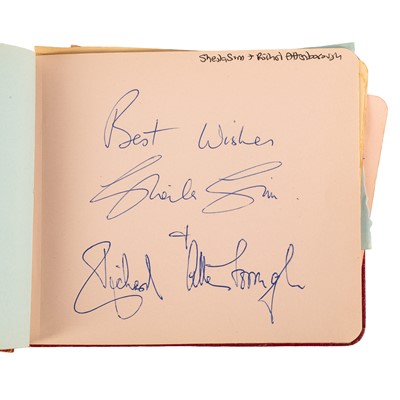 Sheila Sim + Richard Attenborough
Best Wishes
Sheila Sim.
+
Richard Attenborough